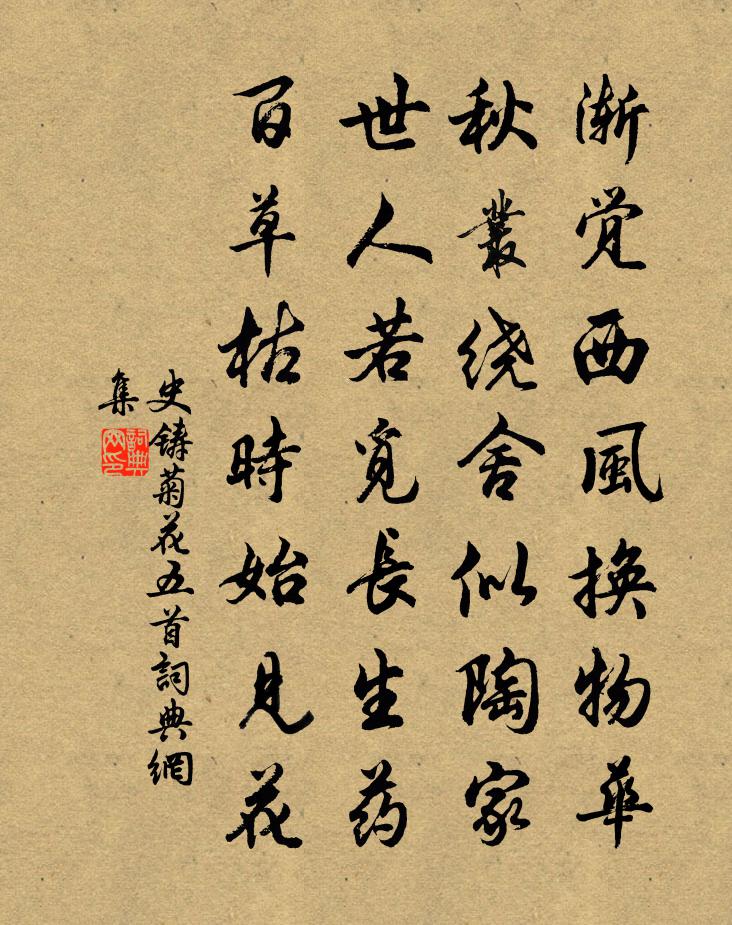 渐觉西風换物華
秋叢绕舍似陶家
世人若覓長生药
百草枯時始見花
史鋳菊花五首詞典網
集
詞典網印